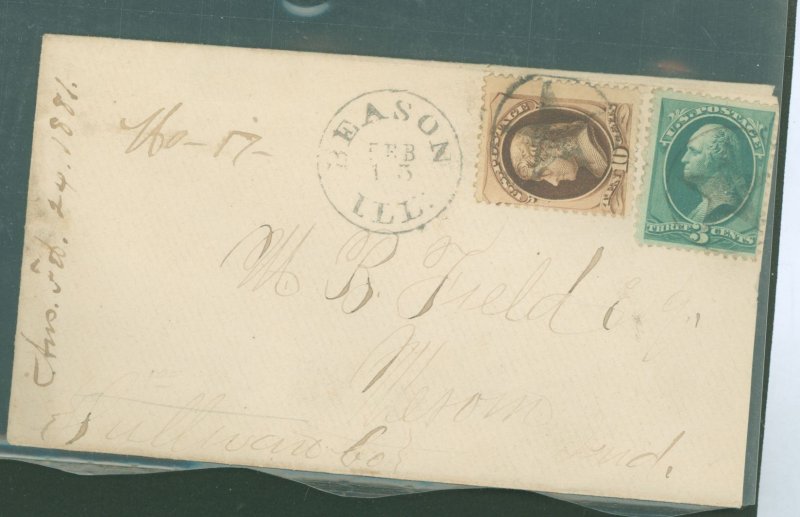 No - 17 -
BEASON
FEB
13
ILL.
U.S. POSTAGE
10
U.S. POSTAGE
THREE 3 CENTS
M. B. Field Esq.
Merom
Sullivan Co Ind.
Ans. Feb. 24. 1881.